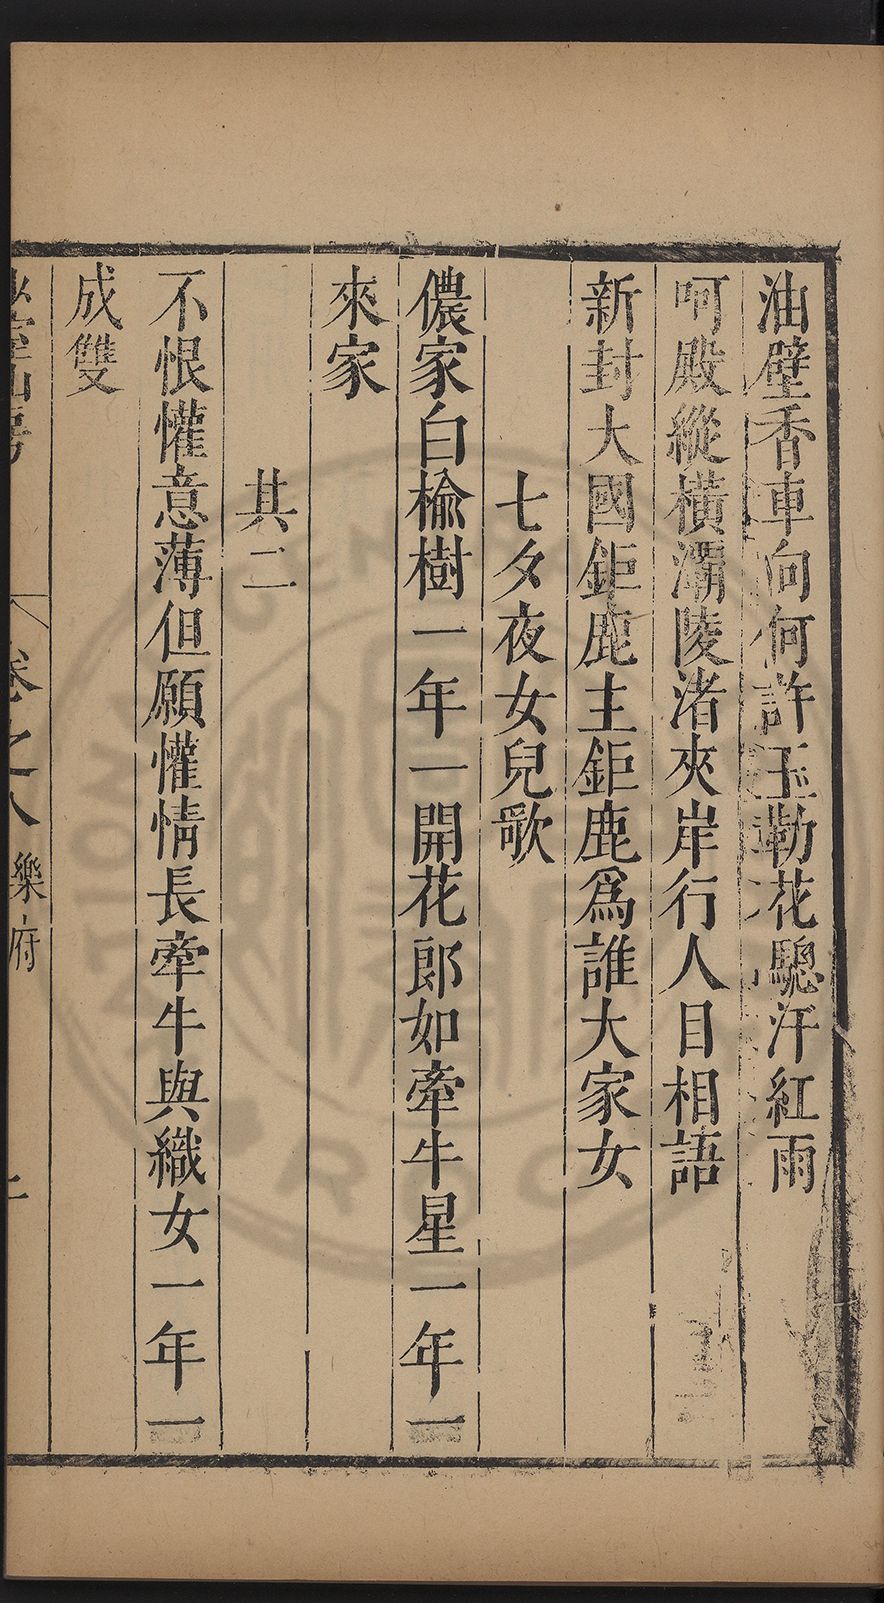 油壁香車向何許玉勒花驄汗紅雨
呵殿縱橫灞陵渚夾岸行人目相語
新封大國鉅鹿主鉅鹿爲誰大家女
七夕夜女兒歌
儂家白楡樹一年一開花郎如牽牛星一年一
來家
其二
不恨懽意薄但願懽情長牽牛與織女一年一
成雙
卷之八 樂府